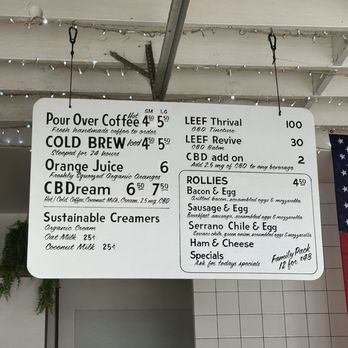 SM LG
Pour Over Coffee Hot 4⁵⁰ 5⁵⁰
Fresh handmade coffee to order
COLD BREW Iced 4⁵⁰ 5⁵⁰
Steeped for 24 hours
Orange Juice 6
Freshly Squeezed Organic Oranges
CBDream 6⁵⁰ 7⁵⁰
Hot/Cold, Coffee, Coconut Milk, Cream, 2.5 mg CBD
Sustainable Creamers
Organic Cream
Oat Milk 25¢
Coconut Milk 25¢
LEEF Thrival 100
CBD Tincture
LEEF Revive 30
CBD Balm
CBD add on 2
Add 2.5 mg of CBD to any beverage
ROLLIES 4⁵⁰
Bacon & Egg
Grilled bacon, scrambled eggs & mozzarella
Sausage & Egg
Breakfast sausage, scrambled eggs & mozzarella
Serrano Chile & Egg
Serrano chile, green onion, scrambled eggs & mozzarella
Ham & Cheese
Specials
Ask for todays specials
Family Pack
12 for $48